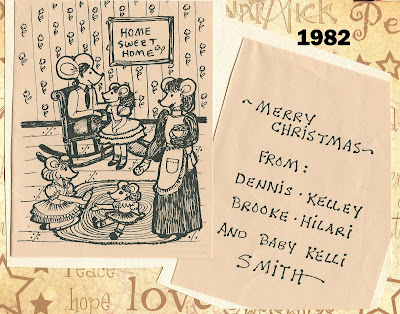 1982
HOME
SWEET
HOME
~MERRY
CHRISTMAS~
FROM:
DENNIS · KELLEY
BROOKE · HILARI
AND BABY KELLI
SMITH
Peace
hope love